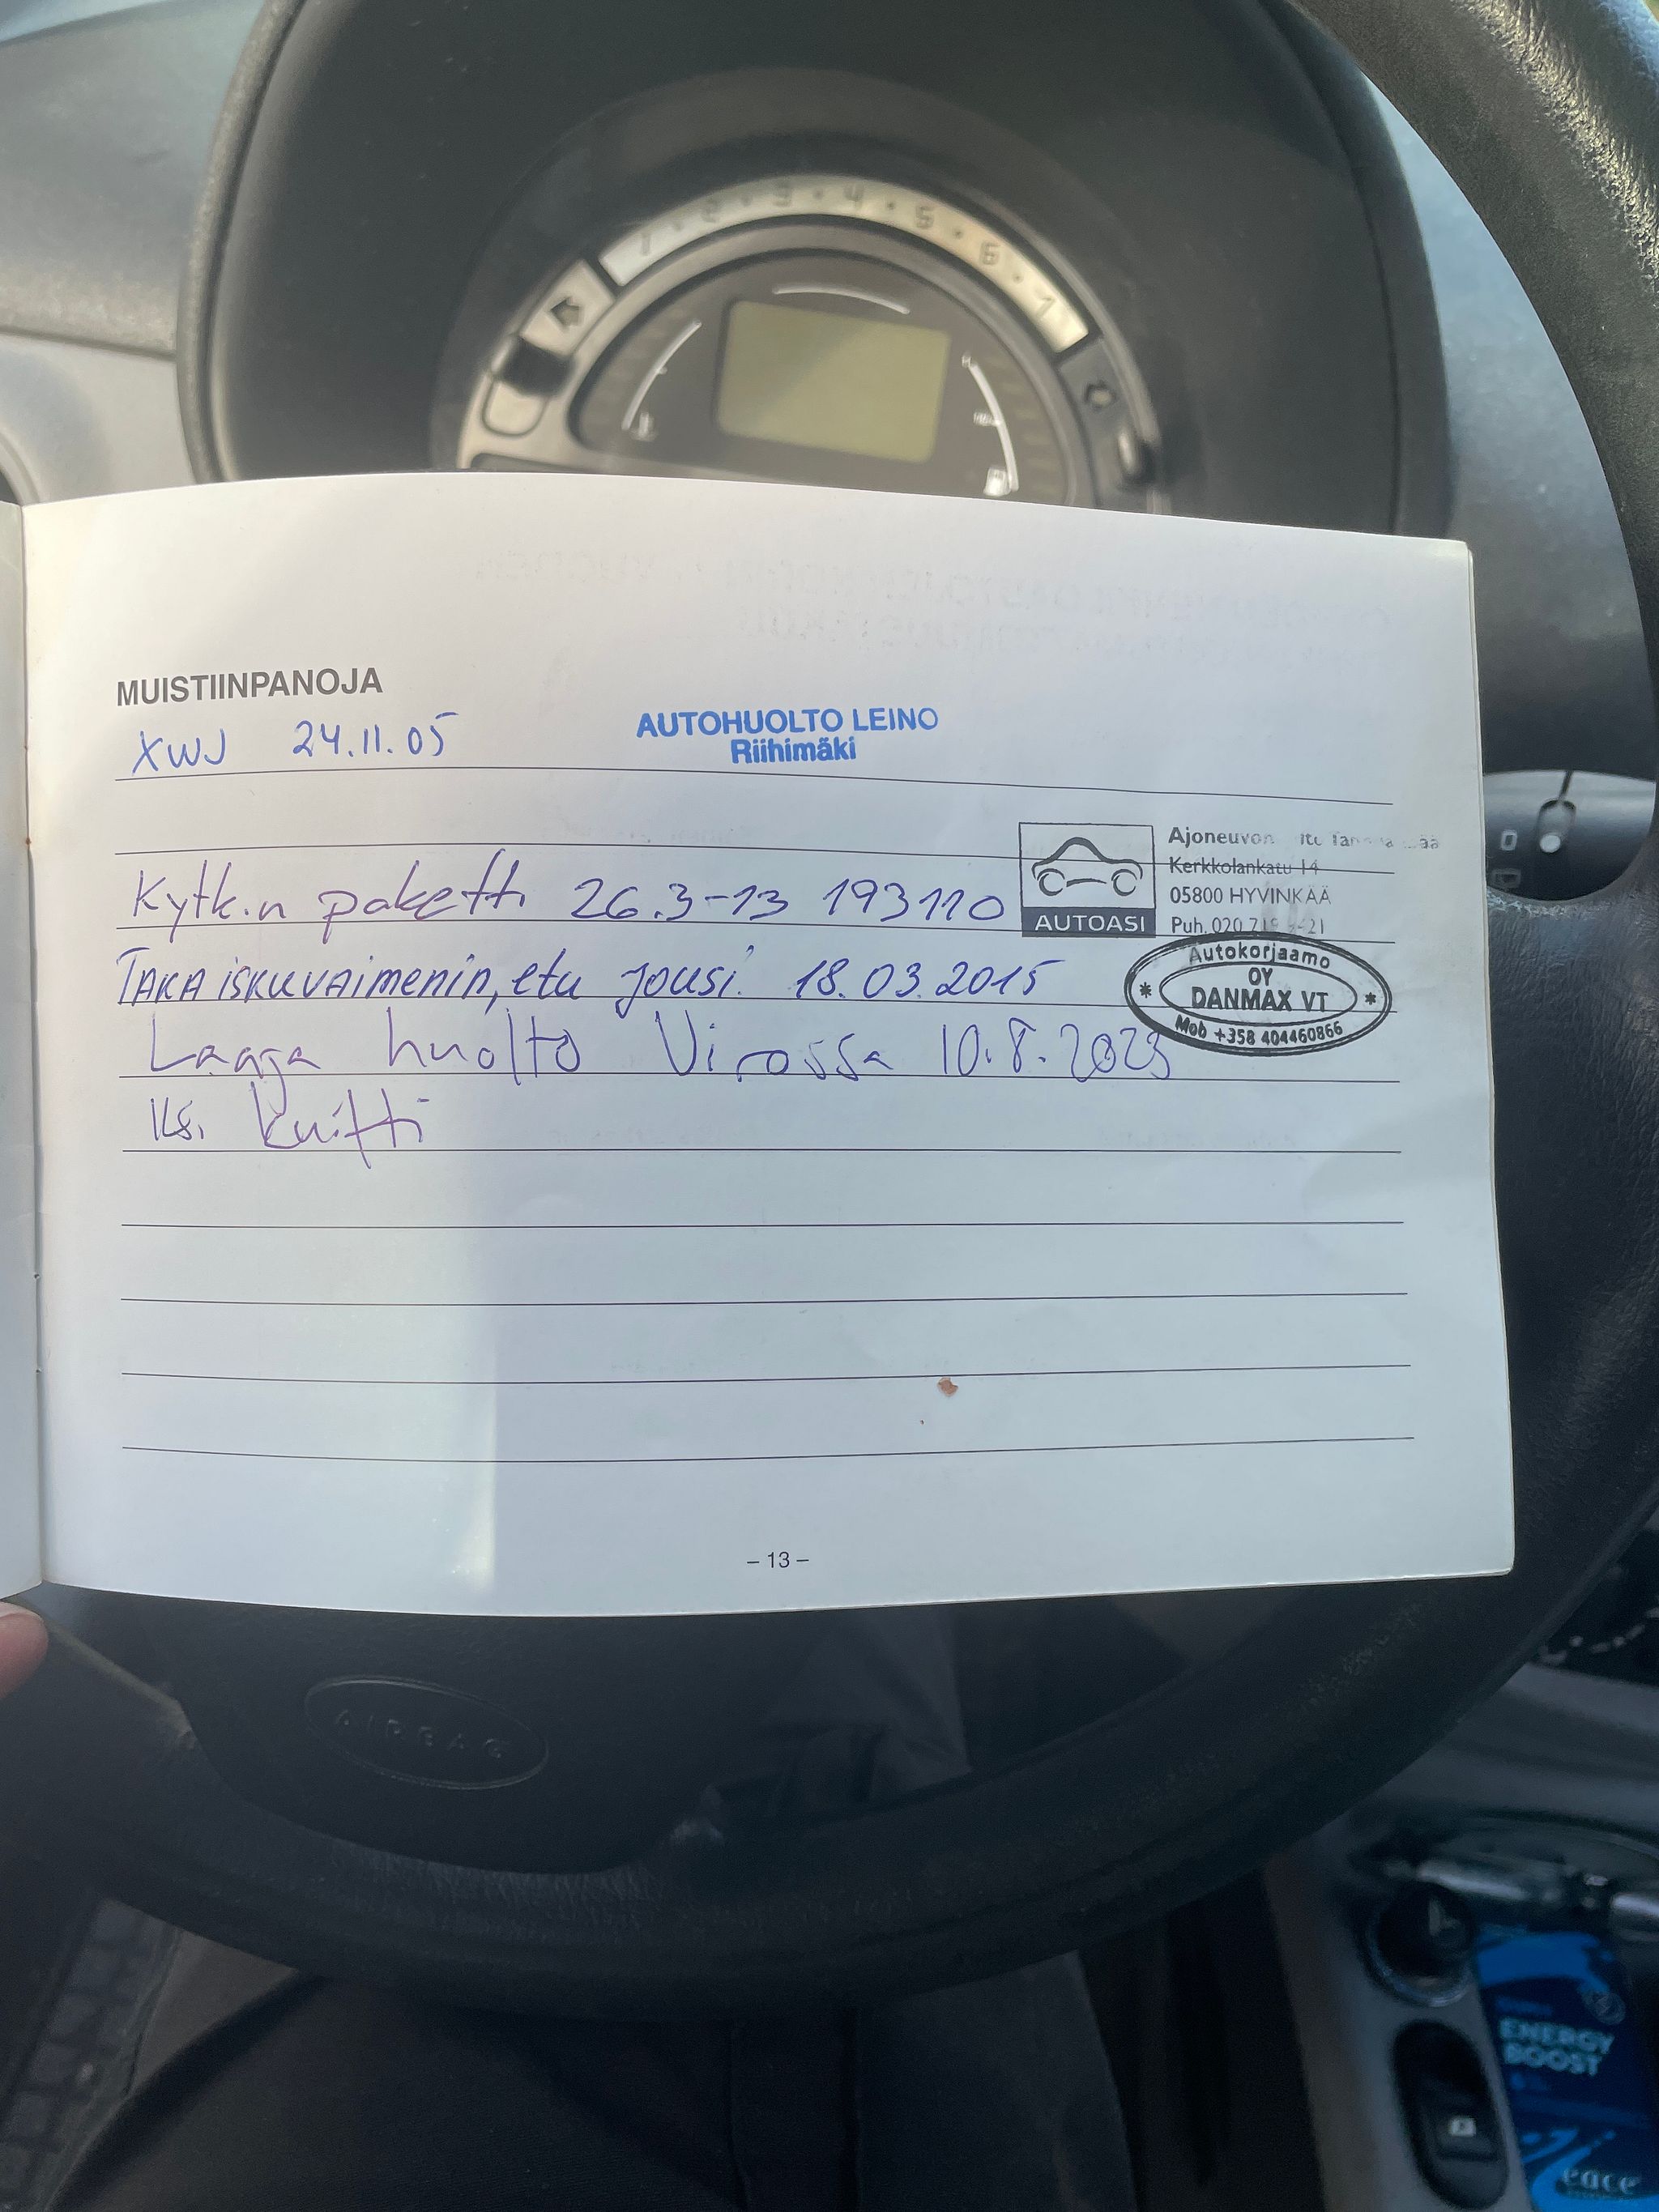 1 · 2 · 3 · 4 · 5 · 6 · 7
MUISTIINPANOJA
XWJ 24.11.05
AUTOHUOLTO LEINO
Riihimäki
Ajoneuvon
Kerkkolankatu 14
05800 HYVINKÄÄ
Puh. 020
AUTOASI
Kytk.n paketti 26.3-13 193110
TAKA iskuvaimenin, etu jousi. 18.03.2015
Autokorjaamo
OY
* DANMAX VT *
Mob +358 404460866
Laaja huolto Virossa 10.8.2023
ks. kuitti
– 13 –
AIRBAG
ENERGY
BOOST
eace